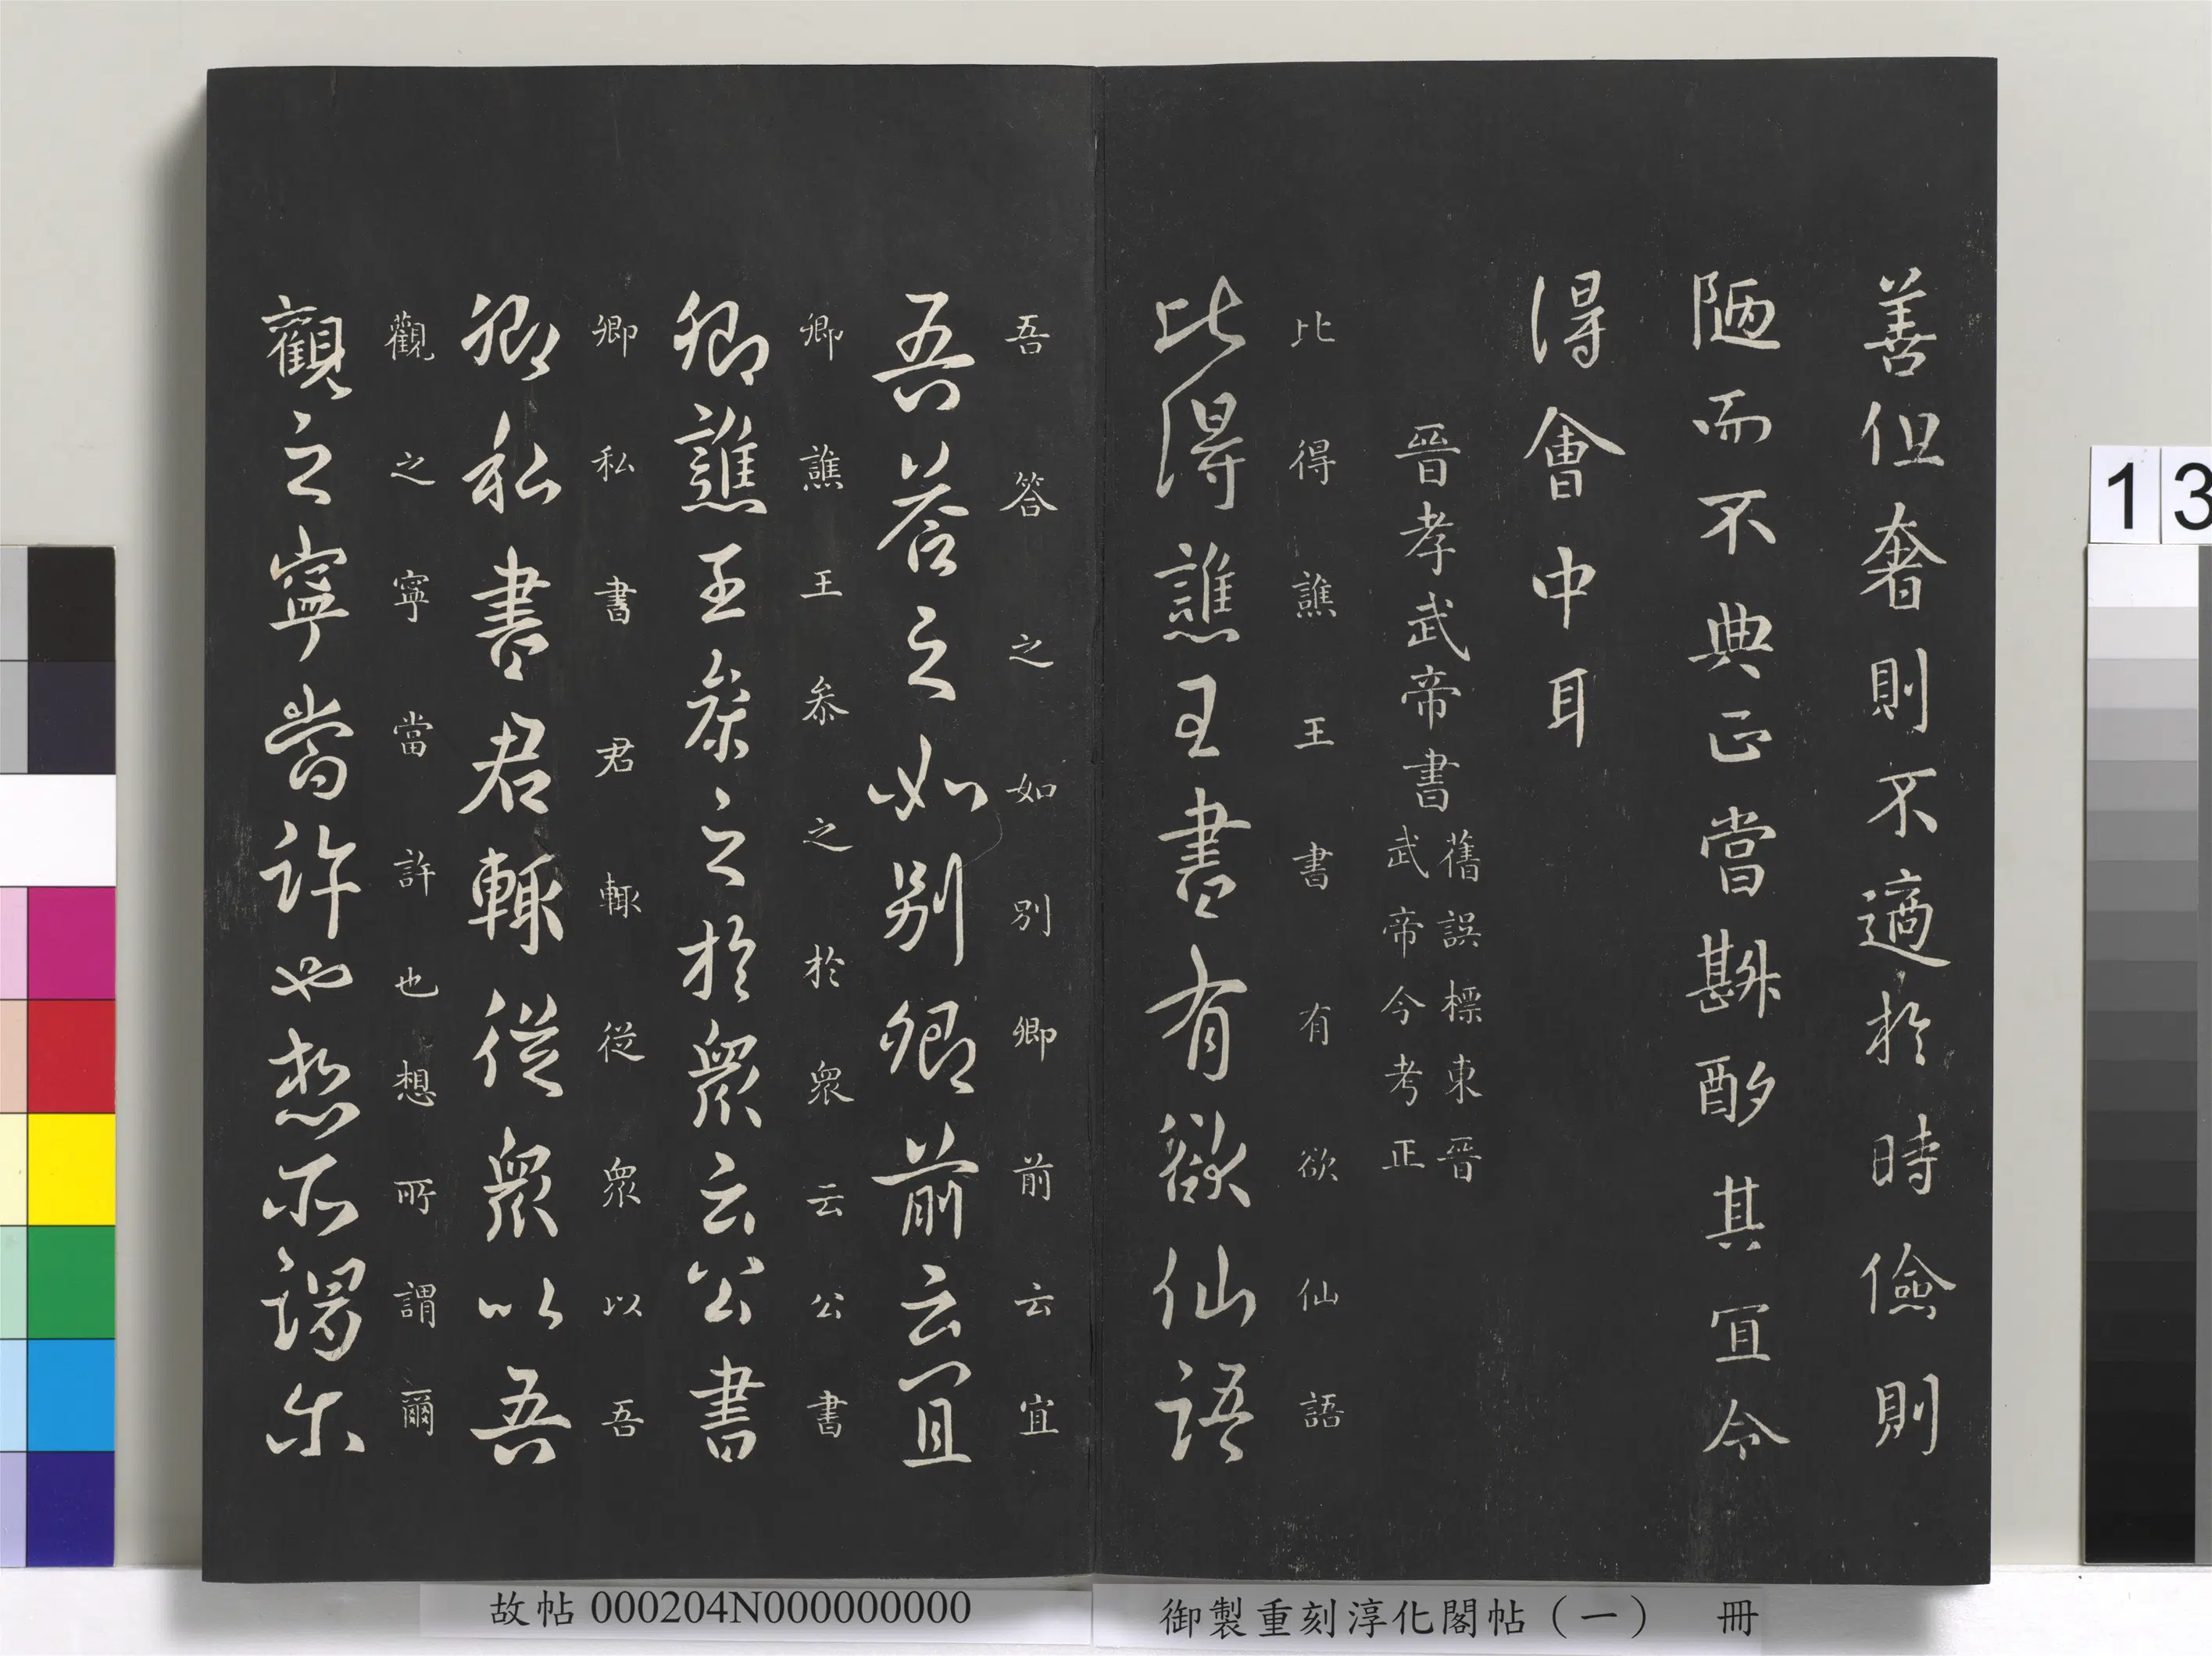 善但奢則不適於時儉則
陋而不典正當斟酌其宜令
得會中耳
晉孝武帝書
舊誤標東晉
武帝今考正
比得譙王書有欲仙語
比得譙王書有欲仙語
吾答之如別卿前云宜
吾答之如別卿前云宜
卿譙王叅之於衆云公書
卿譙王叅之於衆云公書
卿私書君輙從衆以吾
卿私書君輙從衆以吾
觀之寧當許也想所謂爾
觀之寧當許也想所謂尔
13
故帖 000204N000000000
御製重刻淳化閣帖（一） 冊